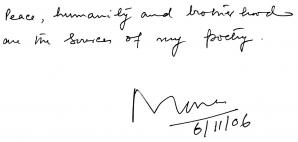 Peace, humanity and brotherhood
are the sources of my poetry.
6/11/06